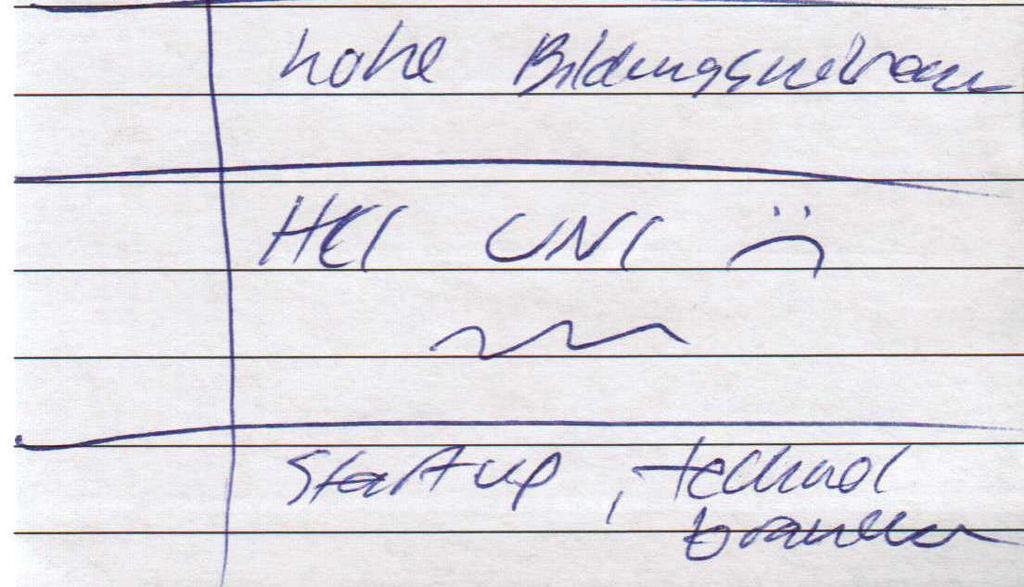 hohe Bildungsniveau
HCI UNI :(
Startup, technol
branchen